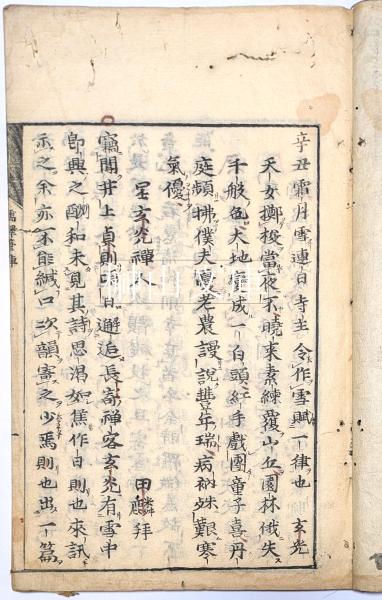 辛丑霜月雪連日寺主令作雪賦一律也 玄光
天女擲梭當夜不曉来素練覆山丘園林俄失
千般色大地變成一白頭紅手戯團童子喜丹
庭頻拂僕夫憂老農謾説豊年瑞病衲殊艱寒
氣優
呈玄光禅 甲麟拝
竊聞井上貞則一日邂逅長寄禅客玄光有雪中
即興之酬和未見其詩思渇如焦作日則也来訊
示之余亦不能緘口次韻寄之少焉則也出一篇